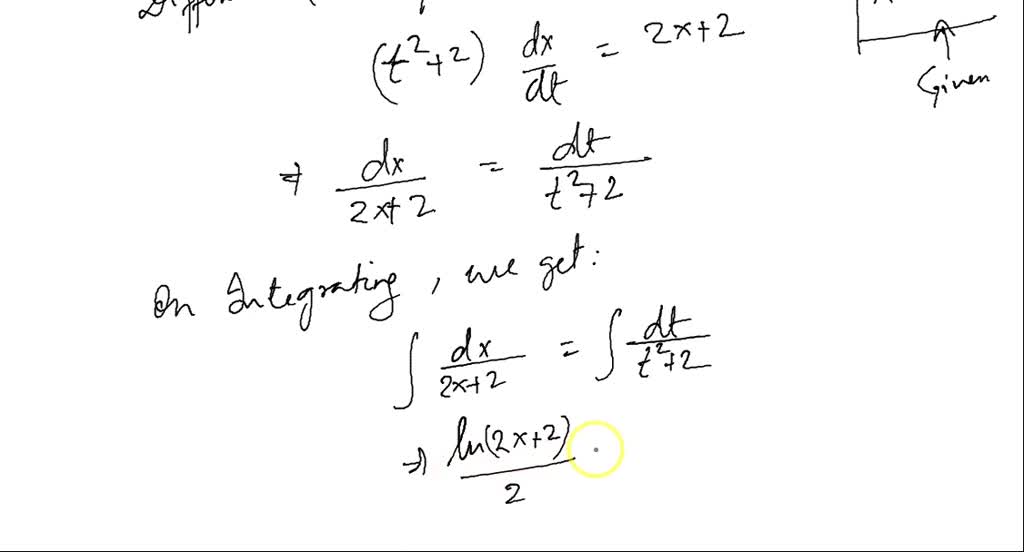 (t²+2) dx/dt = 2x+2
Given
⇒ dx/2x+2 = dt/t²+2
On Integrating, we get:
∫ dx/2x+2 = ∫ dt/t²+2
⇒ ln(2x+2)/2